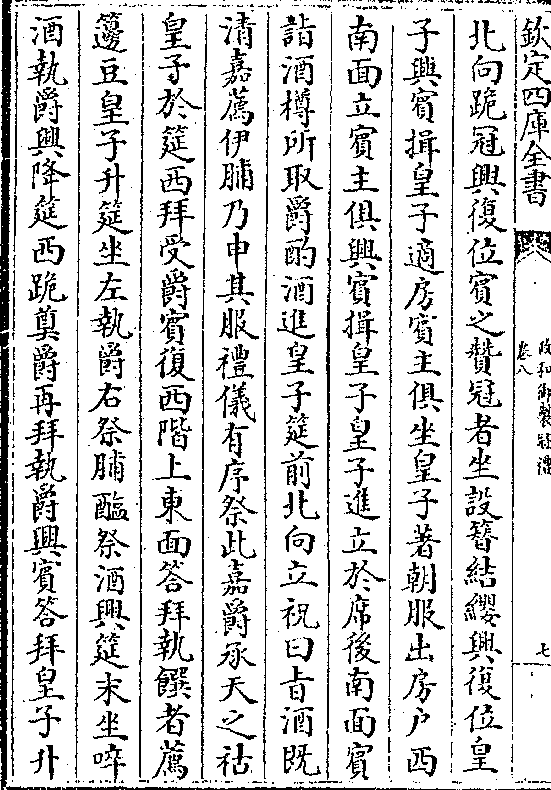 欽定四庫全書
政和御製冠禮
卷八
七
北向跪冠興復位賓之贊冠者坐設簪結纓興復位皇
子興賓揖皇子適房賓主俱坐皇子著朝服出房户西
南面立賓主俱興賓揖皇子皇子進立於席後南面賓
詣酒樽所取爵酌酒進皇子筵前北向立祝曰㫖酒既
清嘉薦伊脯乃申其服禮儀有序祭此嘉爵承天之祜
皇子於筵西拜受爵賓復西階上東面答拜執饌者薦
籩豆皇子升筵坐左執爵右祭脯醢祭酒興筵末坐啐
酒執爵興降筵西跪奠爵再拜執爵興賓答拜皇子升